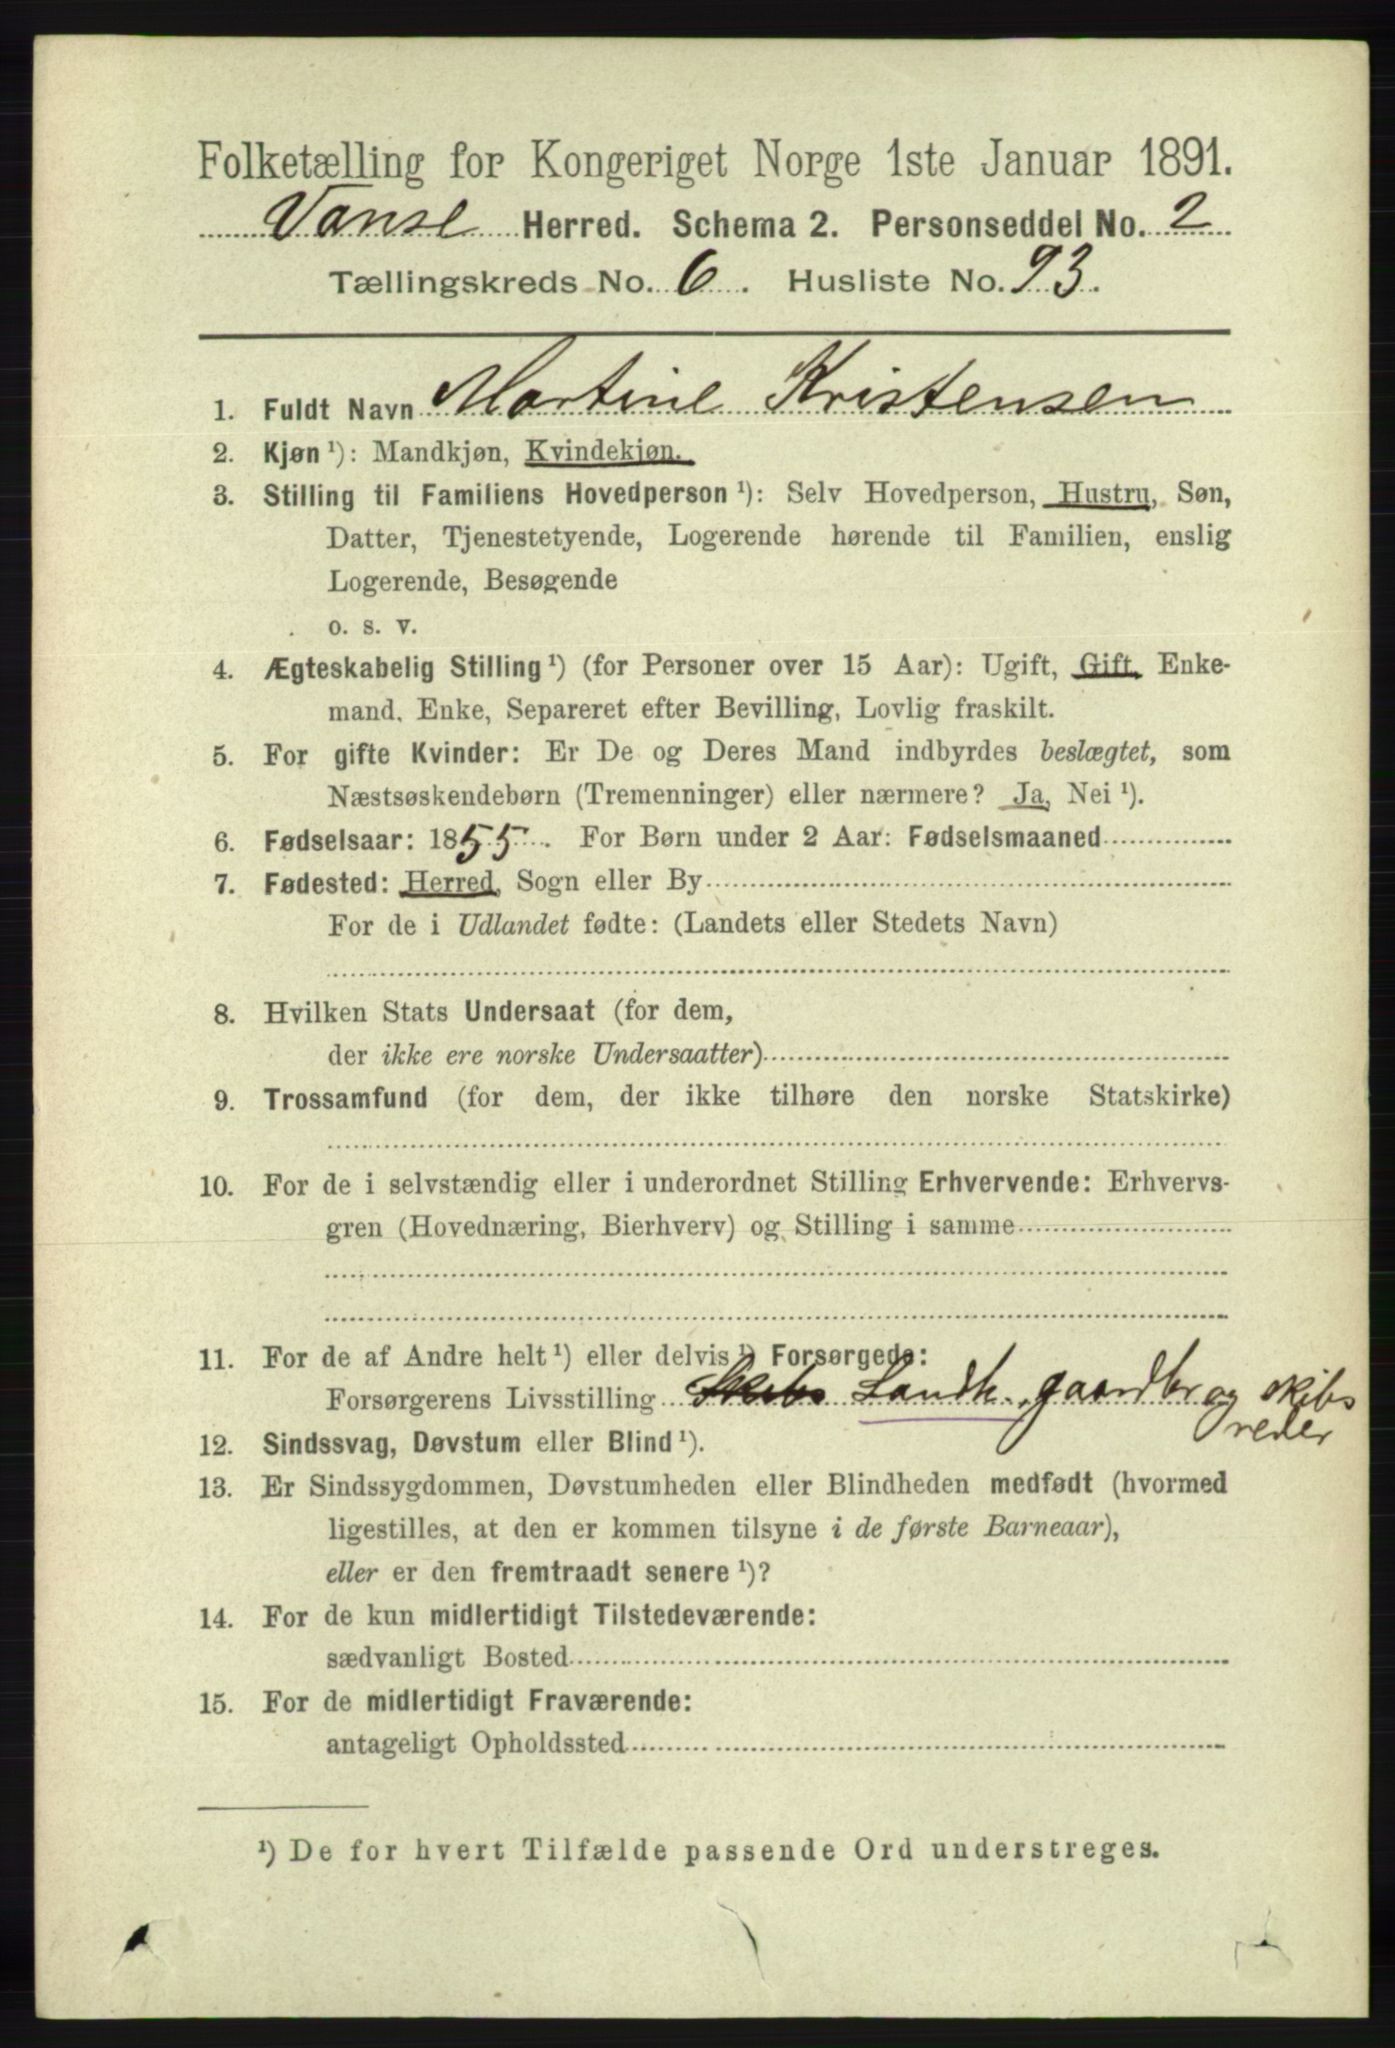 Folketælling for Kongeriget Norge 1ste Januar 1891.
Vanse Herred. Schema 2. Personseddel No. 2
Tællingskreds No. 6. Husliste No. 93.
1. Fuldt Navn Martine Kristensen
2. Kjøn ¹): Mandkjøn, Kvindekjøn.
3. Stilling til Familiens Hovedperson ¹): Selv Hovedperson, Hustru, Søn,
Datter, Tjenestetyende, Logerende hørende til Familien, enslig
Logerende, Besøgende
o. s. v.
4. Ægteskabelig Stilling ¹) (for Personer over 15 Aar): Ugift, Gift, Enke-
mand, Enke, Separeret efter Bevilling, Lovlig fraskilt.
5. For gifte Kvinder: Er De og Deres Mand indbyrdes beslægtet, som
Næstsøskendebørn (Tremenninger) eller nærmere? Ja, Nei ¹).
6. Fødselsaar: 1855. For Børn under 2 Aar: Fødselsmaaned
7. Fødested: Herred, Sogn eller By
For de i Udlandet fødte: (Landets eller Stedets Navn)
8. Hvilken Stats Undersaat (for dem,
der ikke ere norske Undersaatter)
9. Trossamfund (for dem, der ikke tilhøre den norske Statskirke)
10. For de i selvstændig eller i underordnet Stilling Erhvervende: Erhvervs-
gren (Hovednæring, Bierhverv) og Stilling i samme
11. For de af Andre helt ¹) eller delvis ¹) Forsørgede:
Forsørgerens Livsstilling Skibs Landh. gaardbr og skibs
reder
12. Sindssvag, Døvstum eller Blind ¹).
13. Er Sindssygdommen, Døvstumheden eller Blindheden medfødt (hvormed
ligestilles, at den er kommen tilsyne i de første Barneaar),
eller er den fremtraadt senere ¹)?
14. For de kun midlertidigt Tilstedeværende:
sædvanligt Bosted
15. For de midlertidigt Fraværende:
antageligt Opholdssted
¹) De for hvert Tilfælde passende Ord understreges.